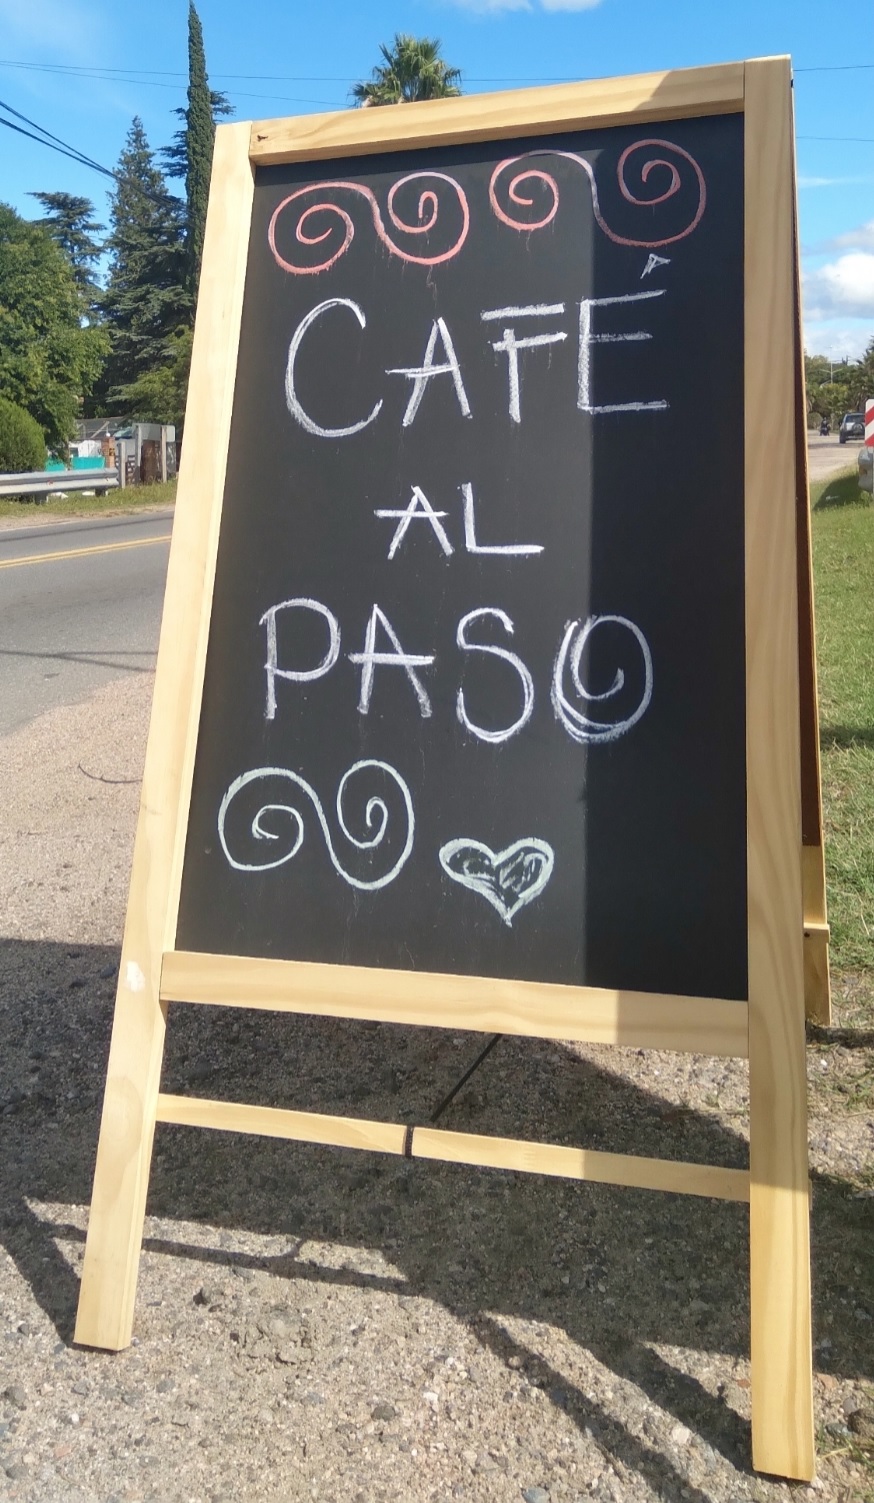 CAFÉ
AL
PASO